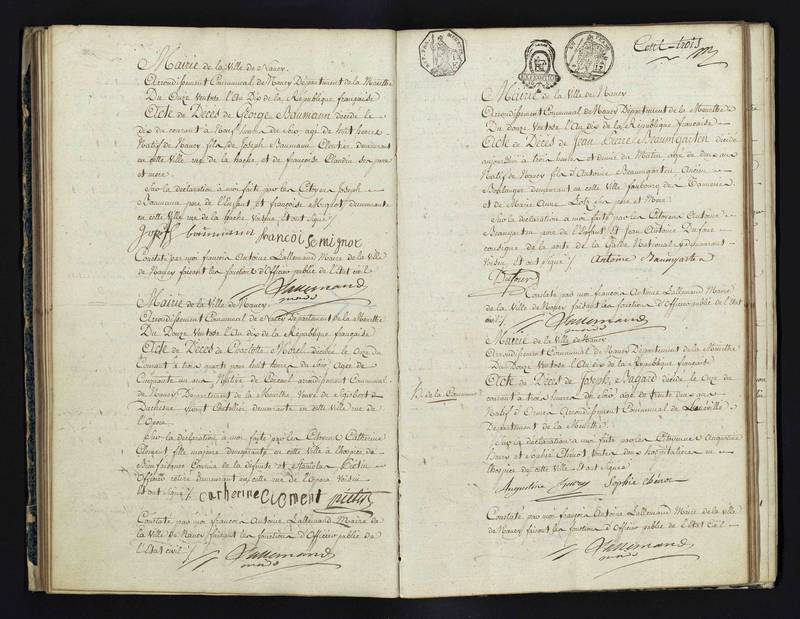 Mairie de la Ville de Nancy.
Arrondissement Communal de Nancy Département de la Meurthe
Du Onze Ventose l'An Dix de la République française
Acte de Décès de George Baumann décédé le
dix du courant à neuf heures du Soir agé de huit heures
Natif de Nancy fils de Joseph Baumann Cloutier demeurant
en cette Ville rue de la hache et de françoise Claudin ses pere
et mere
Sur la déclaration à moi faite par les Citoyens Joseph
Baumann pere de l'Enfant et françois Mignot demeurante
en cette Ville rue de la hache Voisin Et ont Signé
Joseph baumann francois mignot
Constaté par moi françois Antoine Lallemand Maire de la Ville
de Nancy faisant les fonctions d'Officier public de l'Etat civil
Lallemand
Mairie de la Ville de Nancy
Arrondissement Communal de Nancy Département de la Meurthe
Du Douze Ventose l'An dix de la République française
Acte de Décès de Charlotte Morel décédée le Onze du
Courant à trois quarts pour huit heures du Soir Agée de
Cinquante un ans Native de
de Nancy Département de la Meurthe Veuve de
Duchesne vivant demeurante en cette Ville rue de
l'Opera
Sur la déclaration à moi faite par les Citoyens Catherine
Clement fille majeure demeurante en cette Ville à l'hospice de
Bienfaisance Cousine de la défunte et Stanislas
Officier retiré demeurant en cette rue de l'Opera Voisin
Et ont Signé
catherine Clement
Constaté par moi françois Antoine Lallemand Maire de
la Ville de Nancy faisant les fonctions d'Officier public de
l'Etat civil
Lallemand
Cent-trois
Mairie de la Ville de Nancy
Arrondissement Communal de Nancy Département de la Meurthe
Du Douze Ventose l'An dix de la République française
Acte de Décès de Jean Pierre Beaumgarten décédé
aujourd'hui à trois heures et demie du Matin agé de deux ans
Natif de Nancy fils d'Antoine Beaumgarten Ancien
Boulanger demeurant en cette Ville faubourg de
et de Marie Anne ses pere et Mere
Sur la déclaration à moi faite par les Citoyens Antoine
Beaumgarten pere de l'Enfant Et Jean Antoine Dufour
consigne de la porte de la Garde National y demeurant
Voisin et ont Signé
Antoine Baumgarten
Dufour
Constaté par moi françois Antoine Lallemand Maire
de la Ville de Nancy faisant les fonctions d'Officier public de l'Etat
civil
Lallemand
Mairie de la Ville de Nancy
Arrondissement Communal de Nancy Département de la Meurthe
Du Douze Ventose l'An dix de la République française
Acte de Décès de Joseph Bagard décédé le Onze du
courant à trois heures du Soir agé de trente deux ans
Natif d'Ormes Arrondissement Communal de Lunéville
Département de la Meurthe
de la Commune
Sur la déclaration à moi faite par les Citoyennes Augustine
et Sophie Chenot Voisines hospitalieres en
l'hospice de cette Ville Et ont Signé
Augustine Sophie chénot
Constaté par moi françois Antoine Lallemand Maire de la Ville
de Nancy faisant les fonctions d'Officier public de l'Etat civil
Lallemand